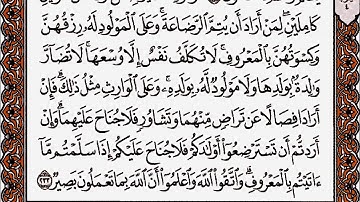 كَامِلَيْنِ ۖ لِمَنْ أَرَادَ أَن يُتِمَّ الرَّضَاعَةَ ۚ وَعَلَى الْمَوْلُودِ لَهُ رِزْقُهُنَّ
وَكِسْوَتُهُنَّ بِالْمَعْرُوفِ ۚ لَا تُكَلَّفُ نَفْسٌ إِلَّا وُسْعَهَا ۚ لَا تُضَآرَّ
وَٰلِدَةٌ بِوَلَدِهَا وَلَا مَوْلُودٌ لَّهُ بِوَلَدِهِ ۚ وَعَلَى الْوَارِثِ مِثْلُ ذَٰلِكَ ۗ فَإِنْ
أَرَادَا فِصَالًا عَن تَرَاضٍ مِّنْهُمَا وَتَشَاوُرٍ فَلَا جُنَاحَ عَلَيْهِمَا ۗ وَإِنْ
أَرَدتُّمْ أَن تَسْتَرْضِعُوا أَوْلَٰدَكُمْ فَلَا جُنَاحَ عَلَيْكُمْ إِذَا سَلَّمْتُم مَّا
ءَاتَيْتُم بِالْمَعْرُوفِ ۗ وَاتَّقُوا اللَّهَ وَاعْلَمُوا أَنَّ اللَّهَ بِمَا تَعْمَلُونَ بَصِيرٌ ٢٣٣